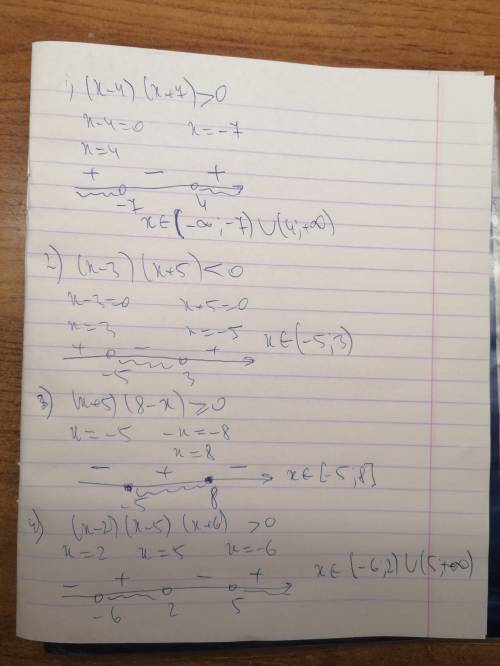 1) (x-4) (x+7)>0
x-4=0 x=-7
x=4
+ - +
-7 4
x∈(-∞;-7)∪(4;+∞)
2) (x-3) (x+5)<0
x-3=0 x+5=0
x=3 x=-5
x∈(-5;3)
+ - +
-5 3
3) (x+5) (8-x)⩾0
x=-5 -x=-8
x=8
- + -
-5 8
x∈[-5;8]
4) (x-2)(x-5) (x+6) >0
x=2 x=5 x=-6
x∈(-6;2)∪(5;+∞)
- + - +
-6 2 5